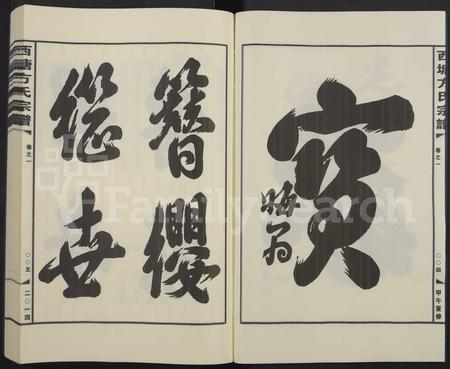 西塘方氏宗譜
卷之一
〇〇四
甲午重修
寶
晦翁
簪纓
繼世
西塘方氏宗譜
卷之一
〇〇五
二〇一四
FamilySearch